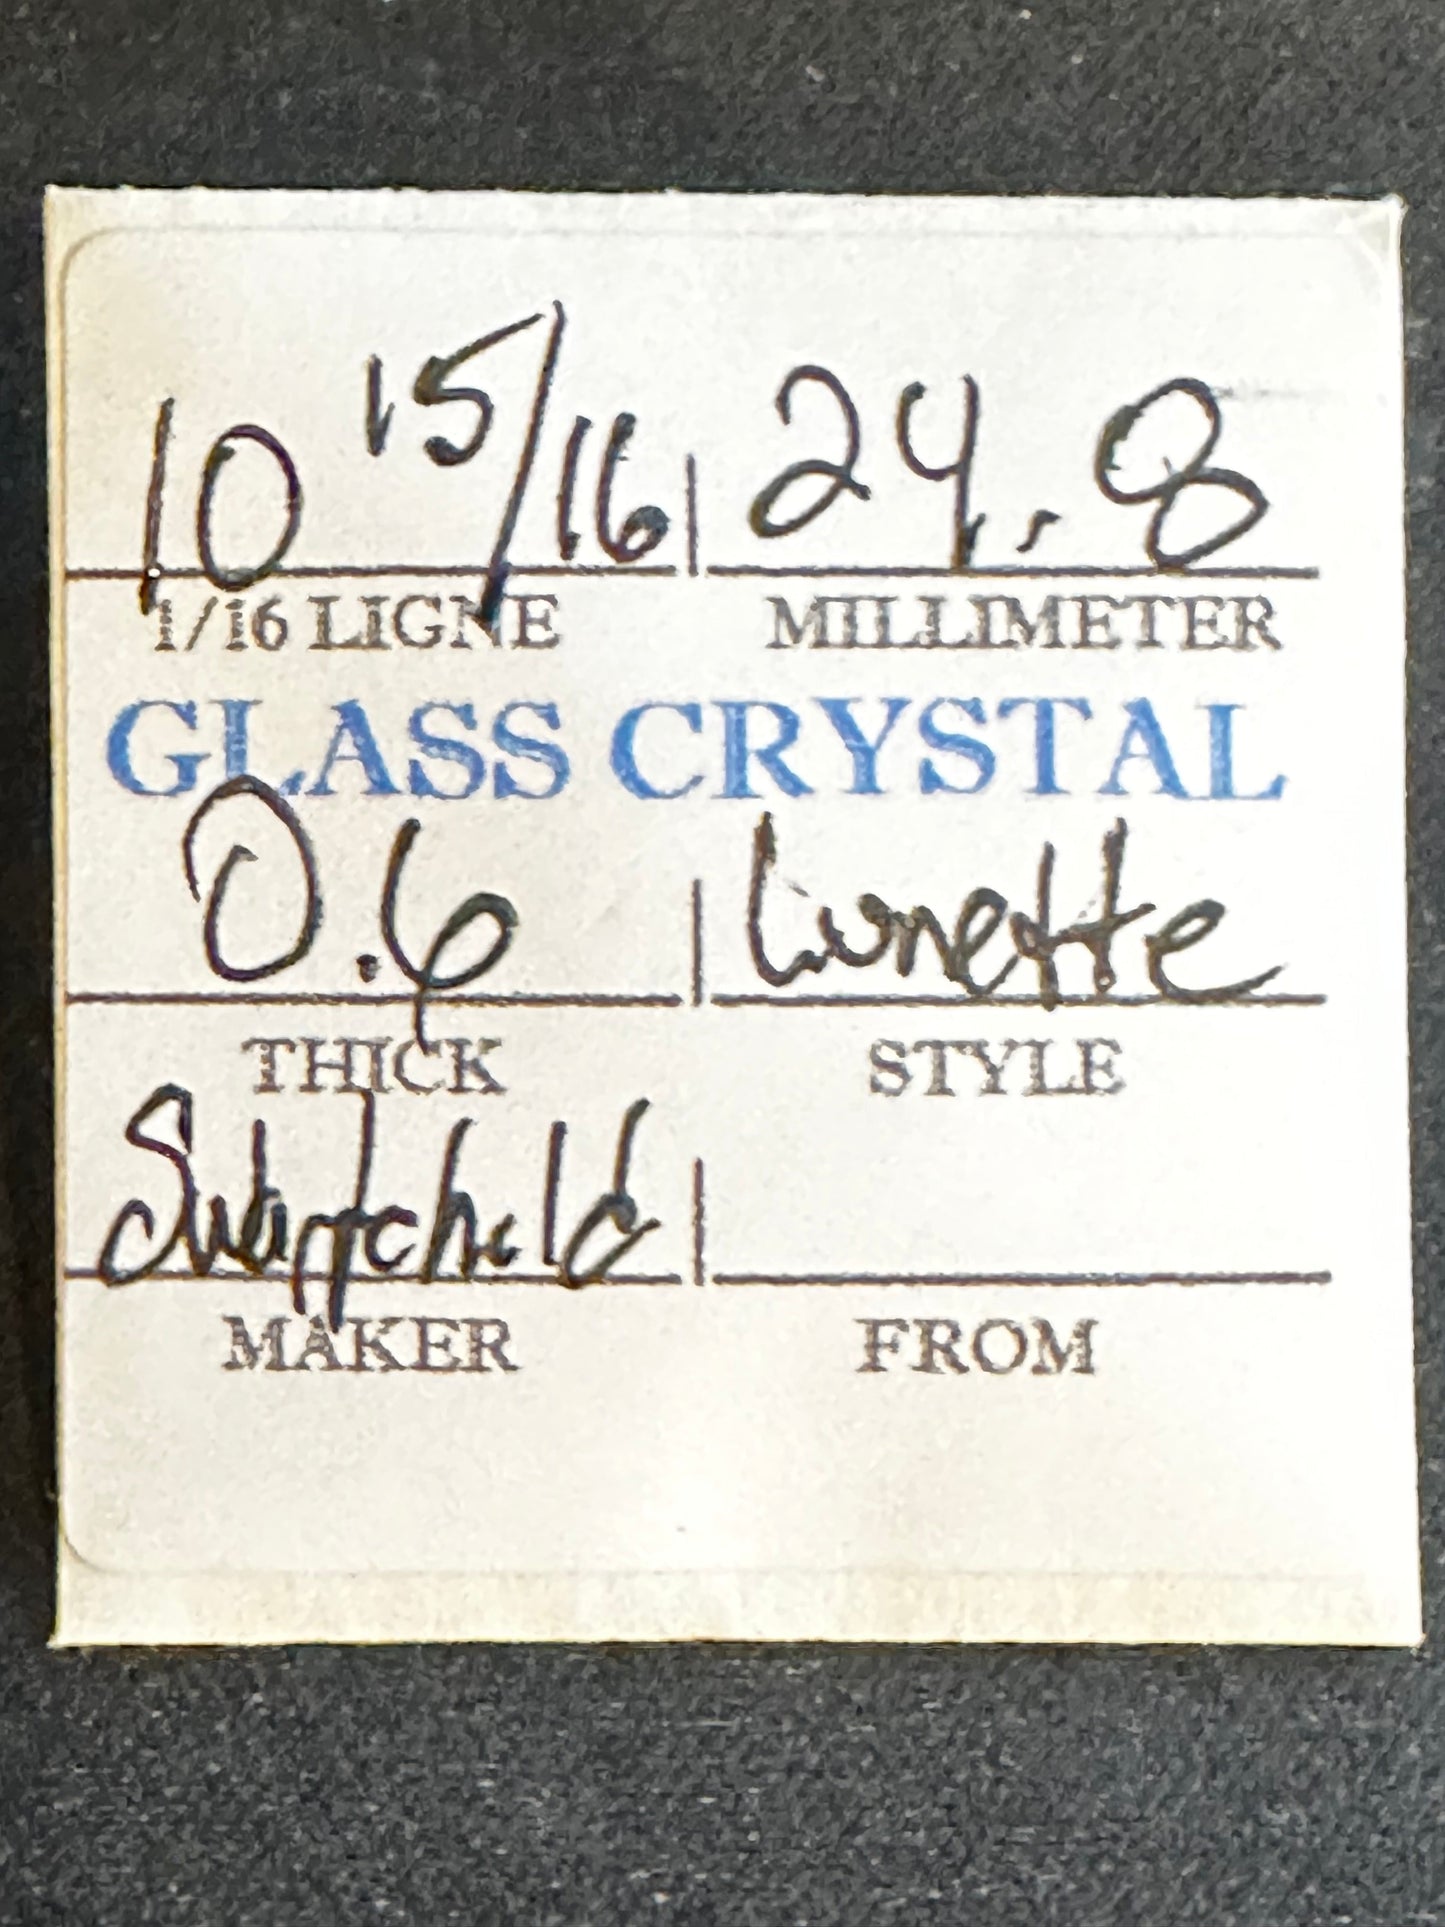 10 15/16 24.8
1/16 LIGNE MILLIMETER
GLASS CRYSTAL
0.6 Lunette
THICK STYLE
MAKER FROM